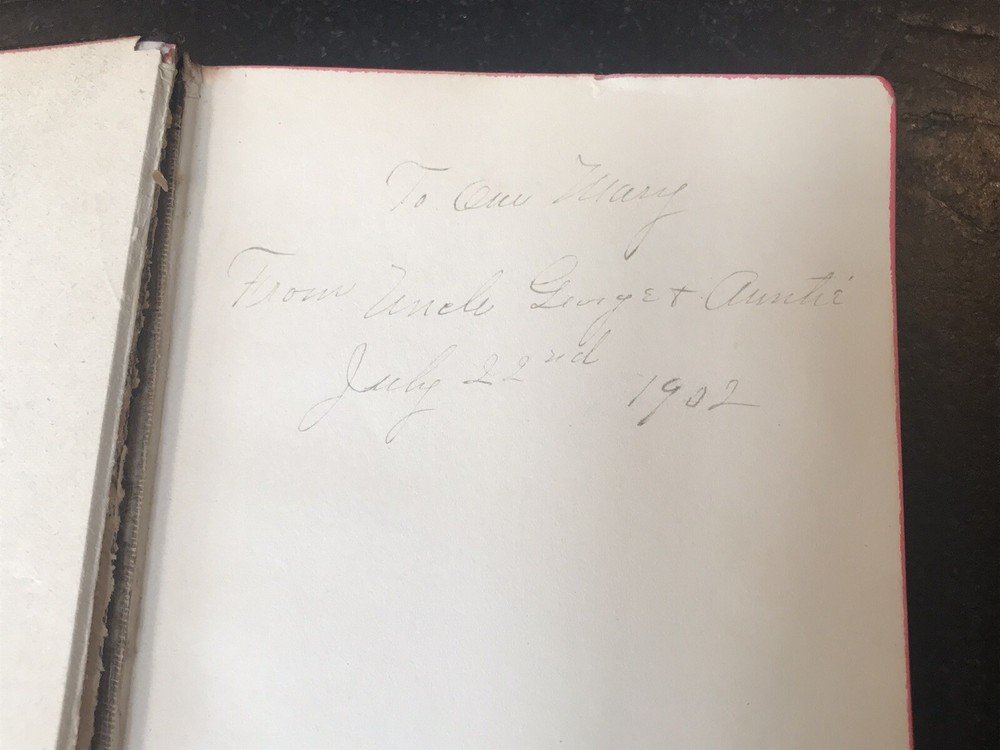 To Our Mary
From Uncle George + Auntie
July 22nd 1902